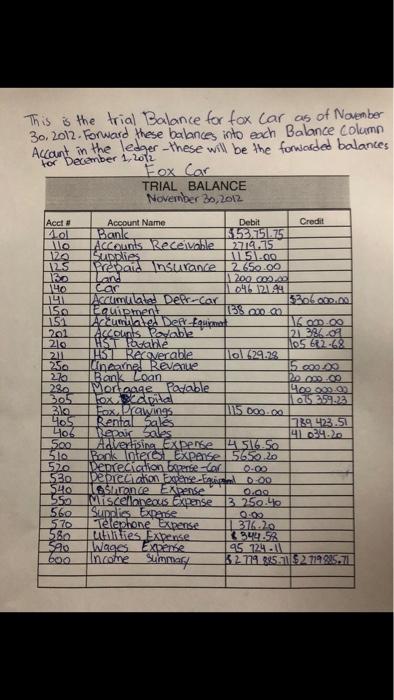 This is the trial Balance for fox car as of November
30, 2012. Forward these balances into each Balance Column
Account in the ledger - these will be the forwarded balances
for December 1, 2012
Fox Car
TRIAL BALANCE
November 30, 2012
Acct # Account Name Debit Credit
101 Bank $53,751.75
110 Accounts Receivable 2719.75
120 Supplies 1151.00
125 Prepaid Insurance 2 650.00
130 Land 1 200 000.00
140 Car 1 046 121.99
141 Accumulated Depr-Car $306 000.00
150 Equipment 138 000.00
151 Accumulated Depr-Equipment 16 000.00
201 Accounts Payable 21 386.09
210 HST Payable 105 682.68
211 HST Recoverable 101 629.28
250 Unearned Revenue 5 000.00
270 Bank Loan 20 000.00
280 Mortgage Payable 400 000.00
305 Fox, Capital
310 Fox, Drawings 115 000.00
405 Rental Sales 789 423.51
406 Repair Sales 41 034.20
500 Advertising Expense 4 516.50
510 Bank Interest Expense 5650.20
520 Depreciation Expense-Car 0.00
530 Depreciation Expense-Equipment 0.00
540 Insurance Expense 0.00
550 Miscellaneous Expense 3 250.40
560 Supplies Expense 0.00
570 Telephone Expense 1 376.20
580 Utilities Expense 344.58
590 Wages Expense 95 724.11
600 Income Summary $2 779 885.71 $2 779 885.71